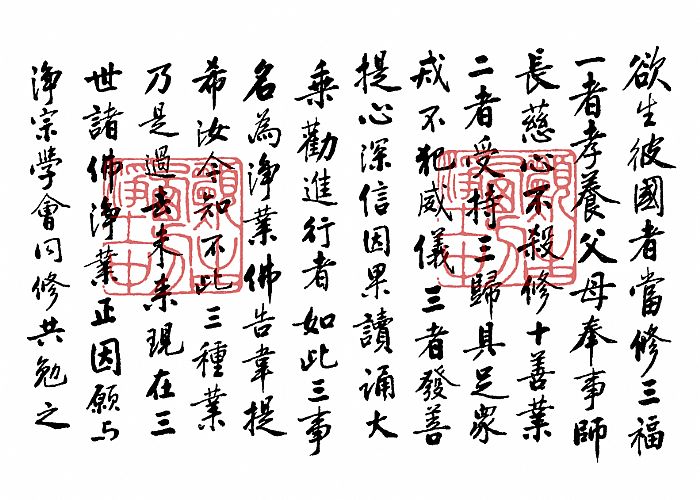 欲生彼國者當修三福
一者孝養父母奉事師
長慈心不殺修十善業
二者受持三歸具足衆
戒不犯威儀三者發菩
提心深信因果讀誦大
乘勸進行者如此三事
名為淨業佛告韋提
希汝今知不此三種業
乃是過去未來現在三
世諸佛淨業正因願与
淨宗學會同修共勉之